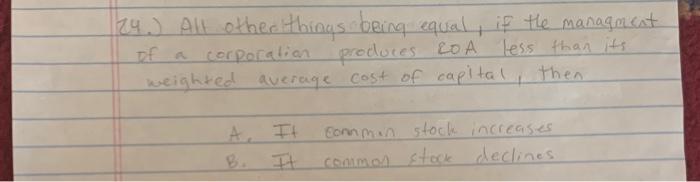 24.) All other things being equal, if the managment
of a corporation produces ROA less than its
weighted average cost of capital, then
A. It common stock increases
B. It common stock declines